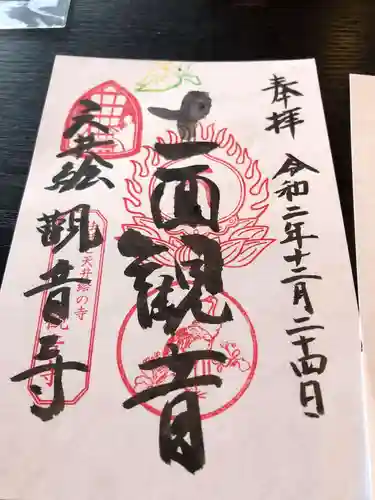 奉拝
令和二年十二月二十四日
十一面観音
天井絵
観音寺
天井絵の寺